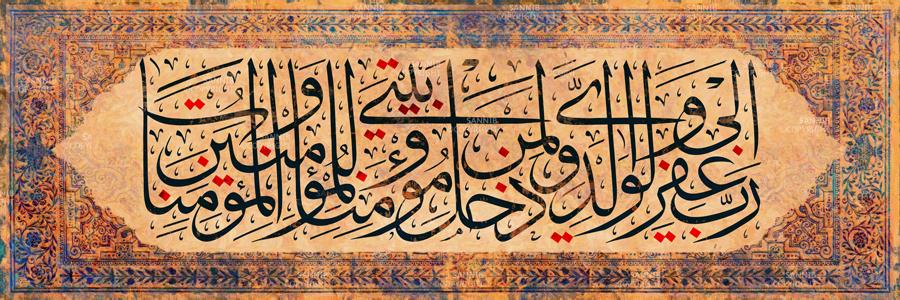 رب اغفر لي ولوالدي ولمن دخل بيتي مؤمنا وللمؤمنين والمؤمنات
SANNIB
COPYRIGHT